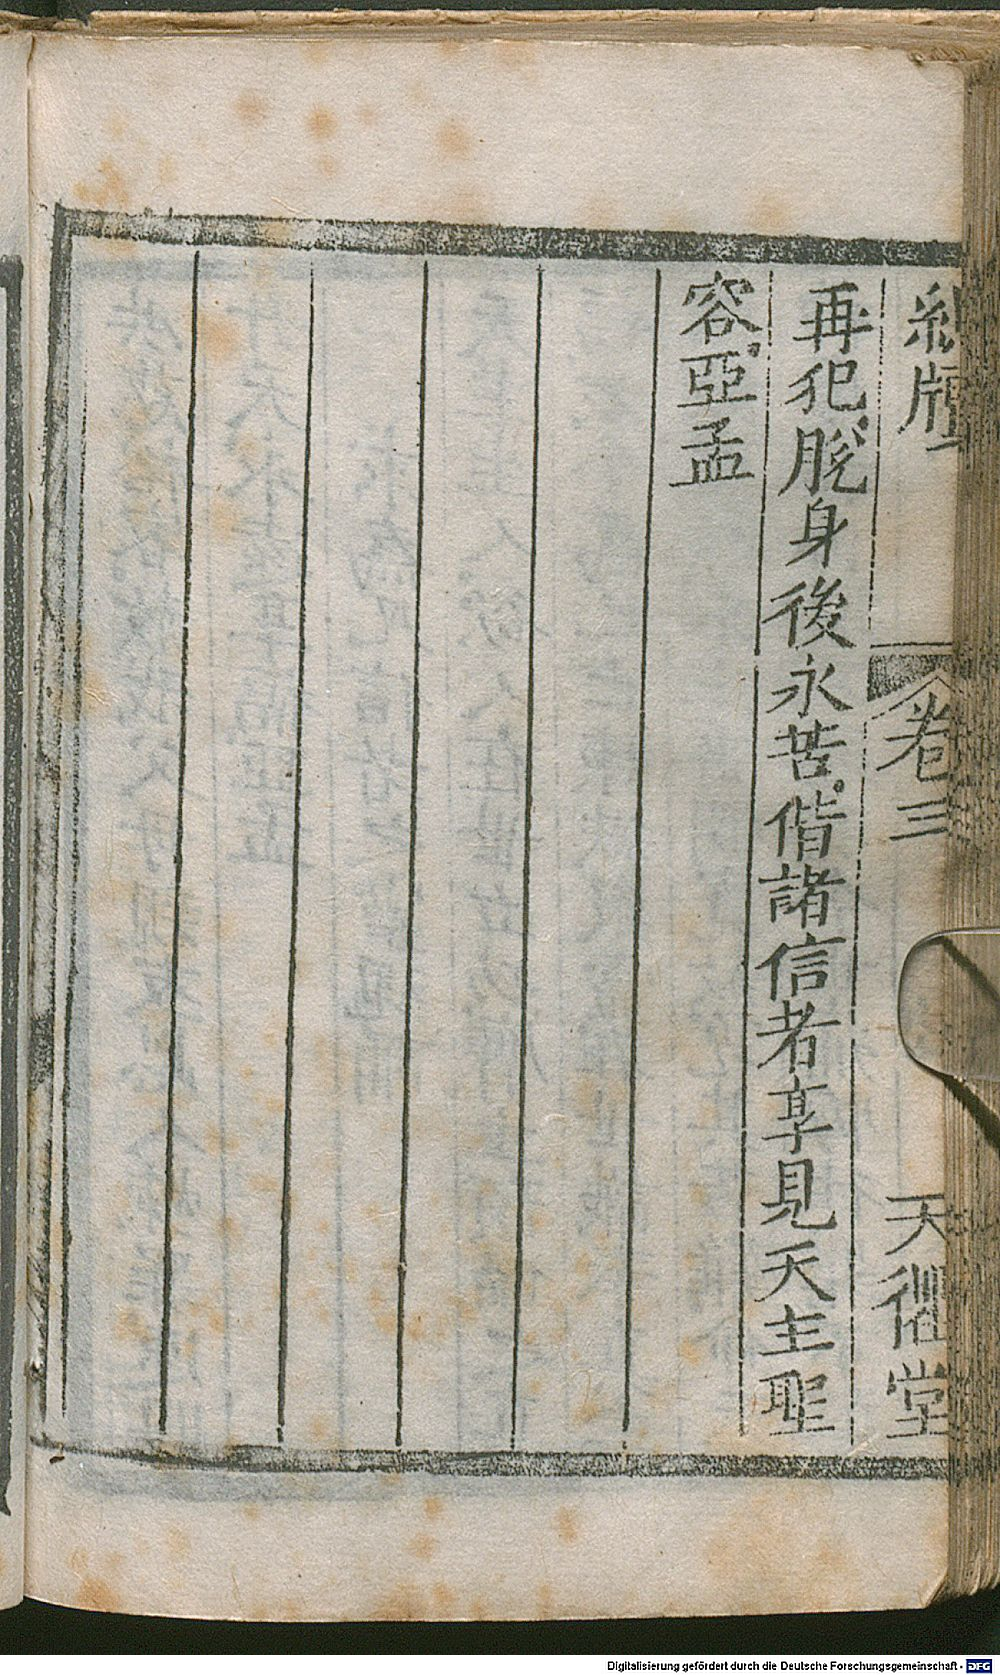 總牘
卷三
天衢堂
再犯、脫身後永苦。偕諸信者享見天主聖
容。亞孟
Digitalisierung gefördert durch die Deutsche Forschungsgemeinschaft - DFG